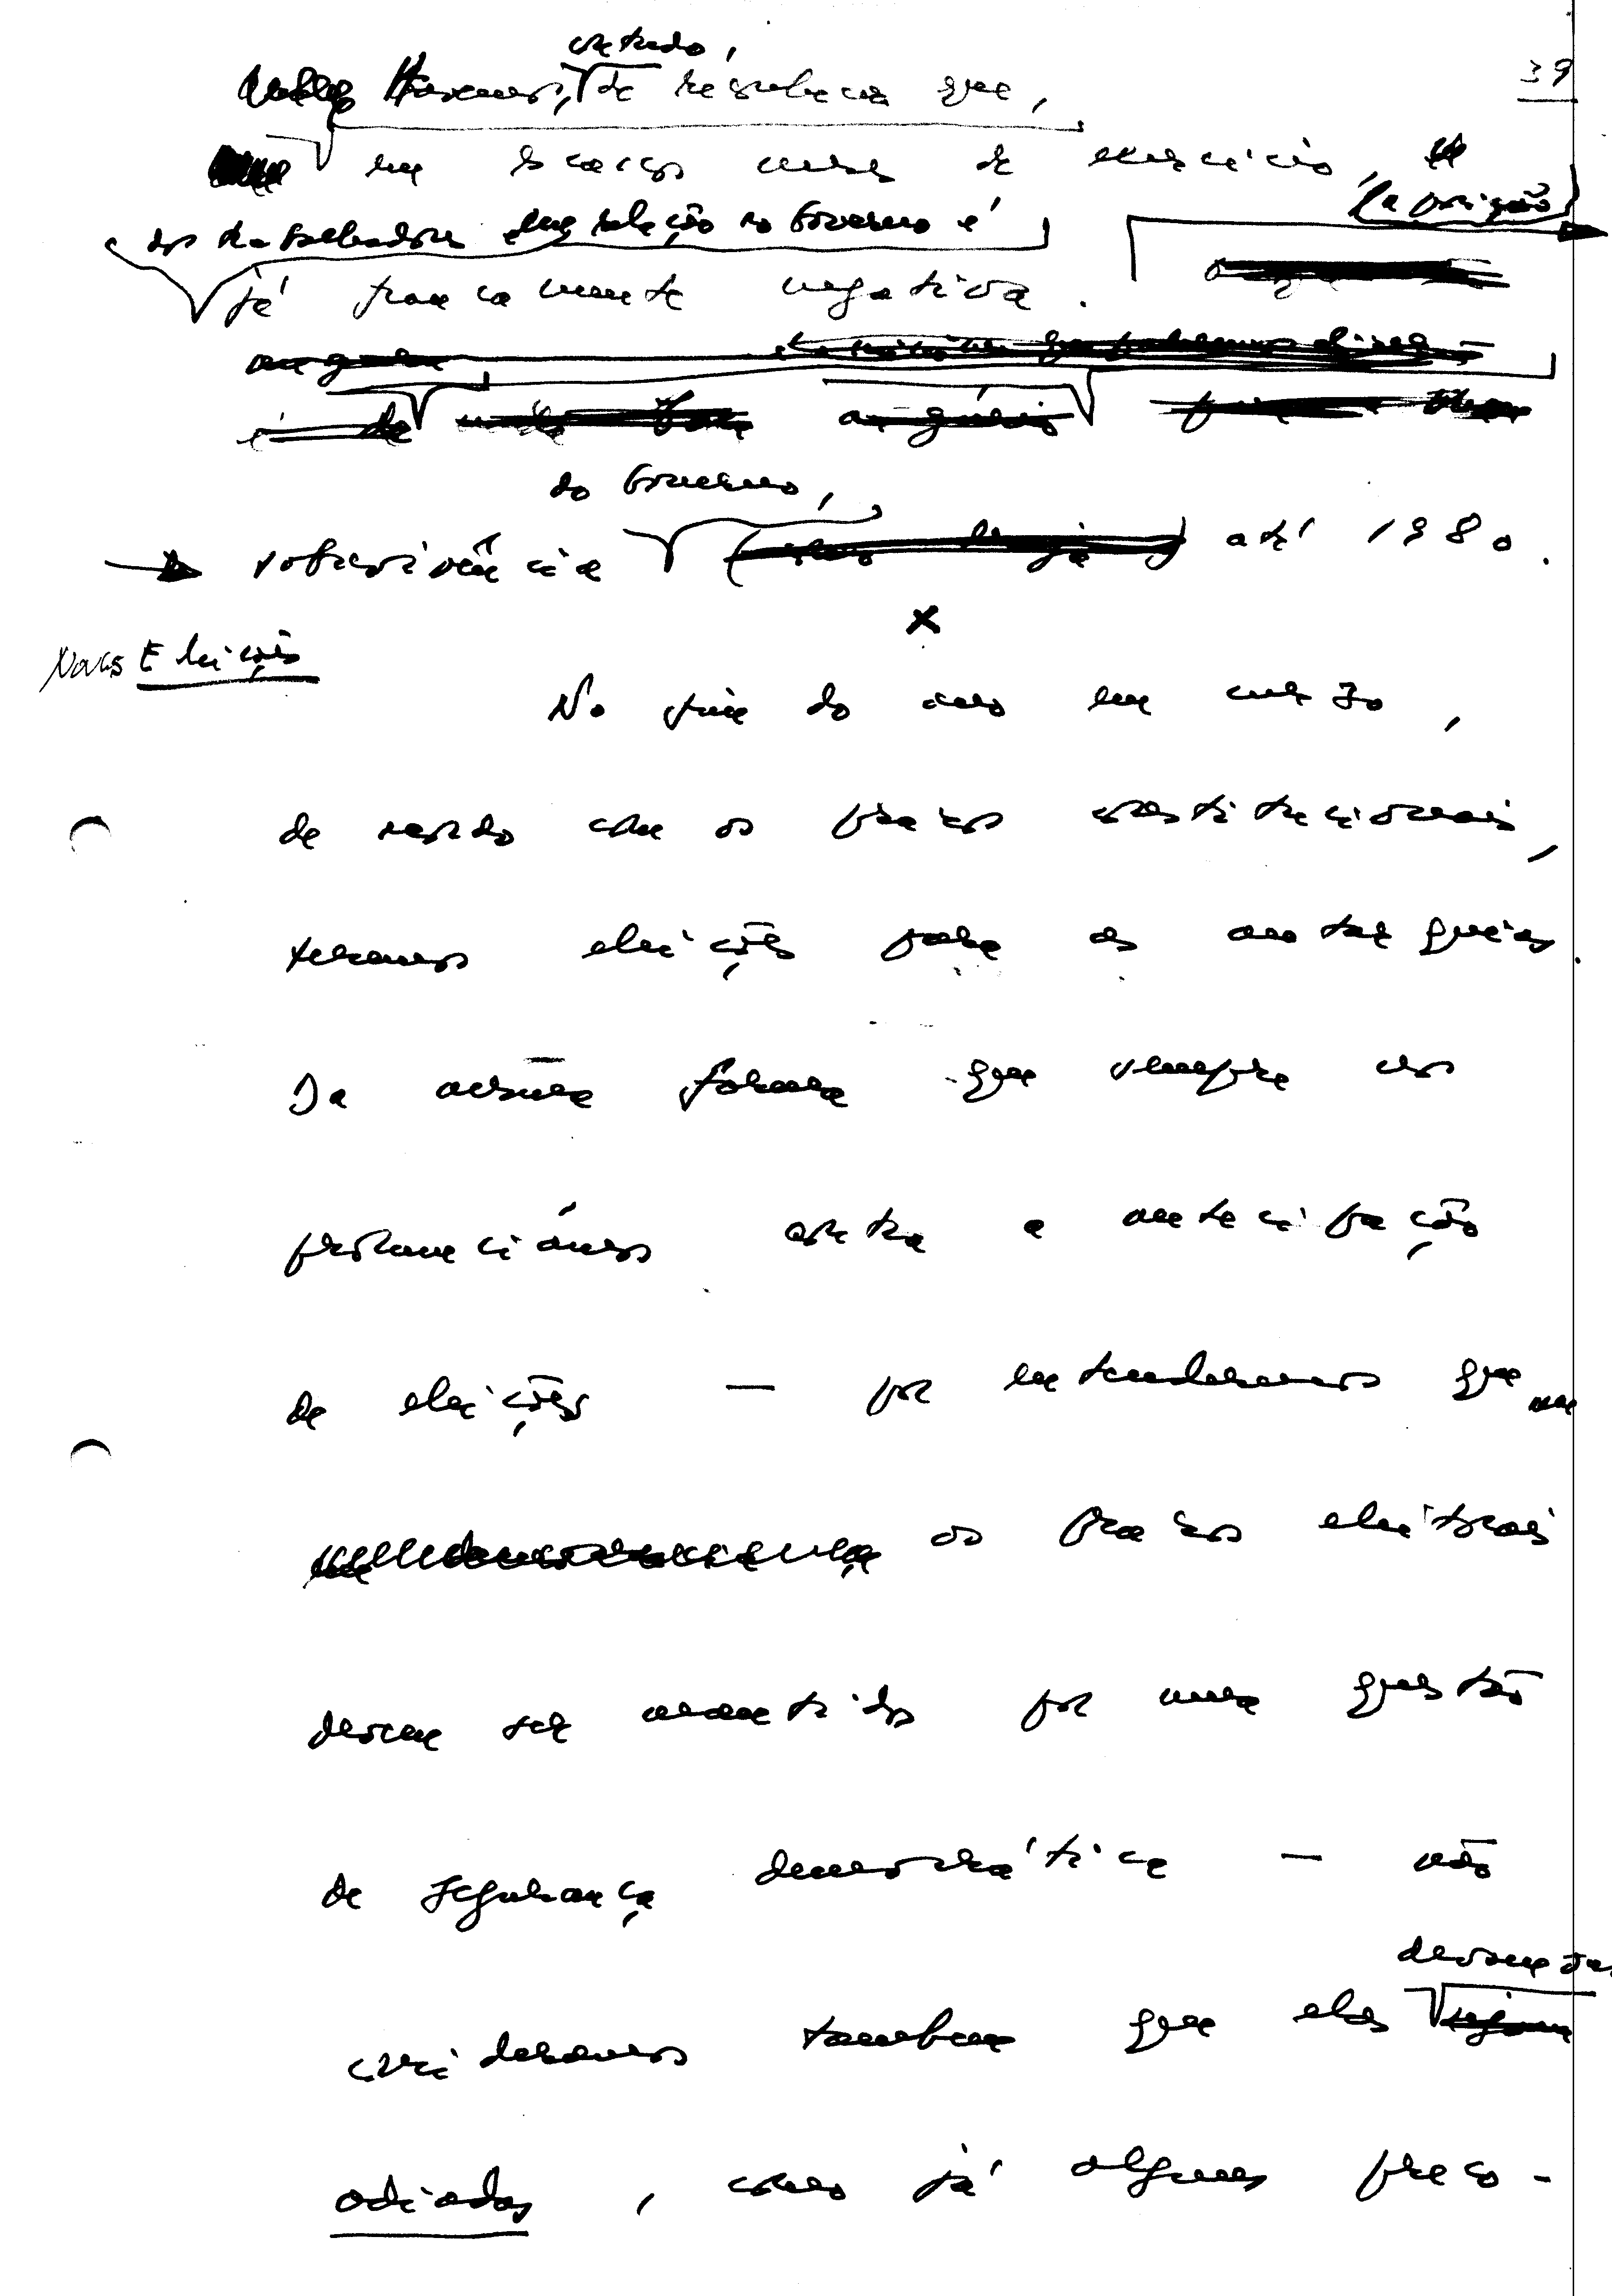 contudo,
Haverá, de reconhecer que,
39
em escassos meses de exercício,
(a posição
dos trabalhadores em relação ao Governo é
já francamente negativa.
do Governo,
sobrevivência até 1980.
x
Novas Eleições
No fim do ano em curso,
de acordo com os prazos constitucionais,
teremos eleições para as autarquias.
Da mesma forma que sempre nos
pronunciámos contra a antecipação
de eleições — por entendermos que
os prazos eleitorais
devem ser mantidos por uma questão
de segurança democrática — não
devam ser
consideramos também que elas
adiadas, como já alguns preco-